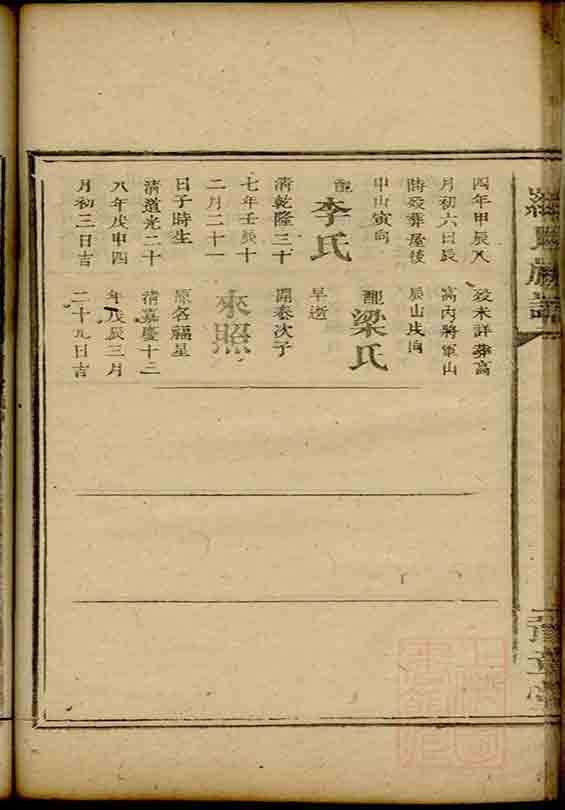 四年甲辰八
月初六日辰
時歿葬屋後
申山寅向
配
李氏
清乾隆三十
七年壬辰十
二月二十一
日子時生
清道光二十
八年戊申四
月初三日吉
歿未詳葬高
高內將軍山
辰山戌向
配
梁氏
早逝
開泰次子
來照
原名福星
清嘉慶十三
年戊辰三月
二十九日吉
羅氏族譜
豫章堂